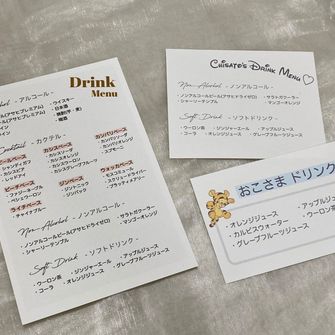 Drink
Menu
Alcohol - アルコール -
・ウイスキー
・日本酒
・焼酎(芋・麦)
・梅酒
Cocktail - カクテル -
カシスベース
・カシスソーダ
・カシスオレンジ
・カシスウーロン
・カシスグレープフルーツ
カンパリベース
・カンパリソーダ
・カンパリオレンジ
・スプモーニ
ビールベース
・シャンディガフ
・カシスビア
・レッドアイ
ピーチベース
・ファジーネーブル
・ピーチウーロン
ジンベース
・ジントニック
・ジンバック
ウォッカベース
・モスコミュール
・スクリュードライバー
・ブラッディメアリー
ライチベース
・チャイナブルー
Non-Alcohol - ノンアルコール -
・ノンアルコールビール(アサヒドライゼロ)
・シャーリーテンプル
・サラトガクーラー
・マンゴーオレンジ
Soft Drink - ソフトドリンク -
・ウーロン茶
・コーラ
・ジンジャーエール
・オレンジジュース
・アップルジュース
・グレープフルーツジュース
Chisato's Drink Menu
Non-Alcohol - ノンアルコール -
・ノンアルコールビール(アサヒドライゼロ)
・シャーリーテンプル
・サラトガクーラー
・マンゴーオレンジ
Soft Drink - ソフトドリンク -
・ウーロン茶
・コーラ
・ジンジャーエール
・オレンジジュース
・アップルジュース
・グレープフルーツジュース
おこさま ドリンク
・オレンジジュース
・カルピスウォーター
・グレープフルーツジュース
・アップルジュ
・ウーロン茶